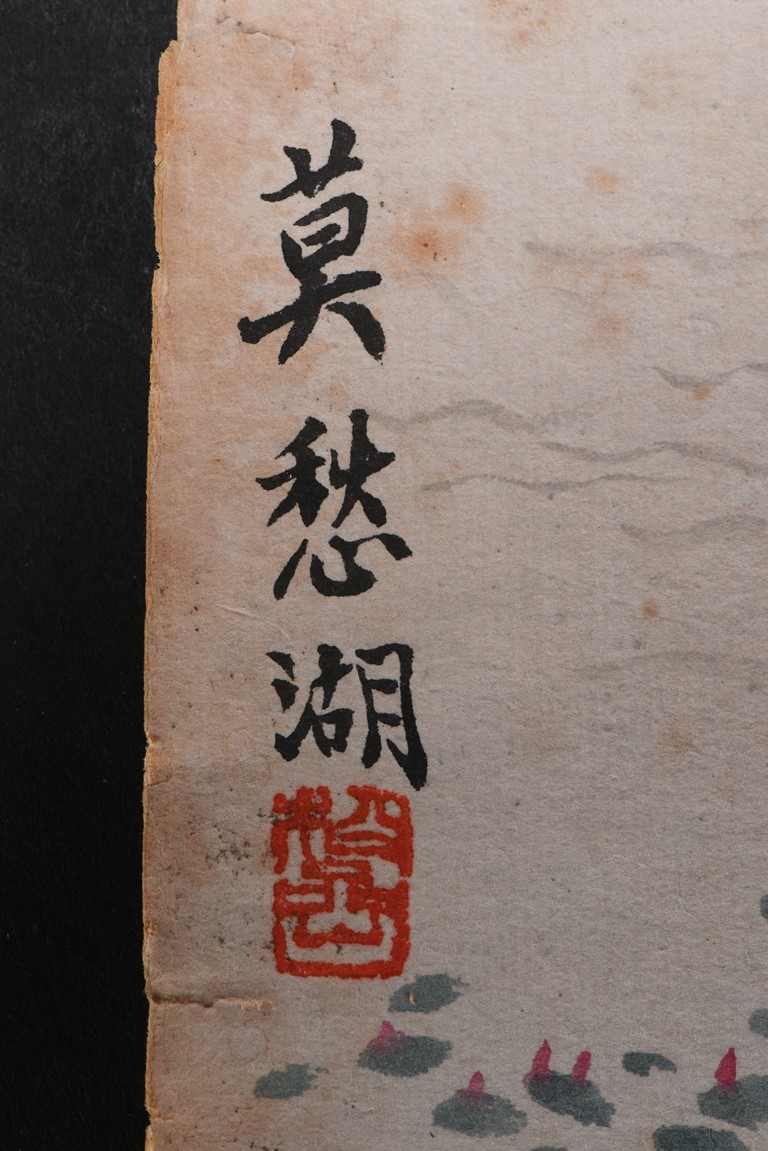 莫愁湖